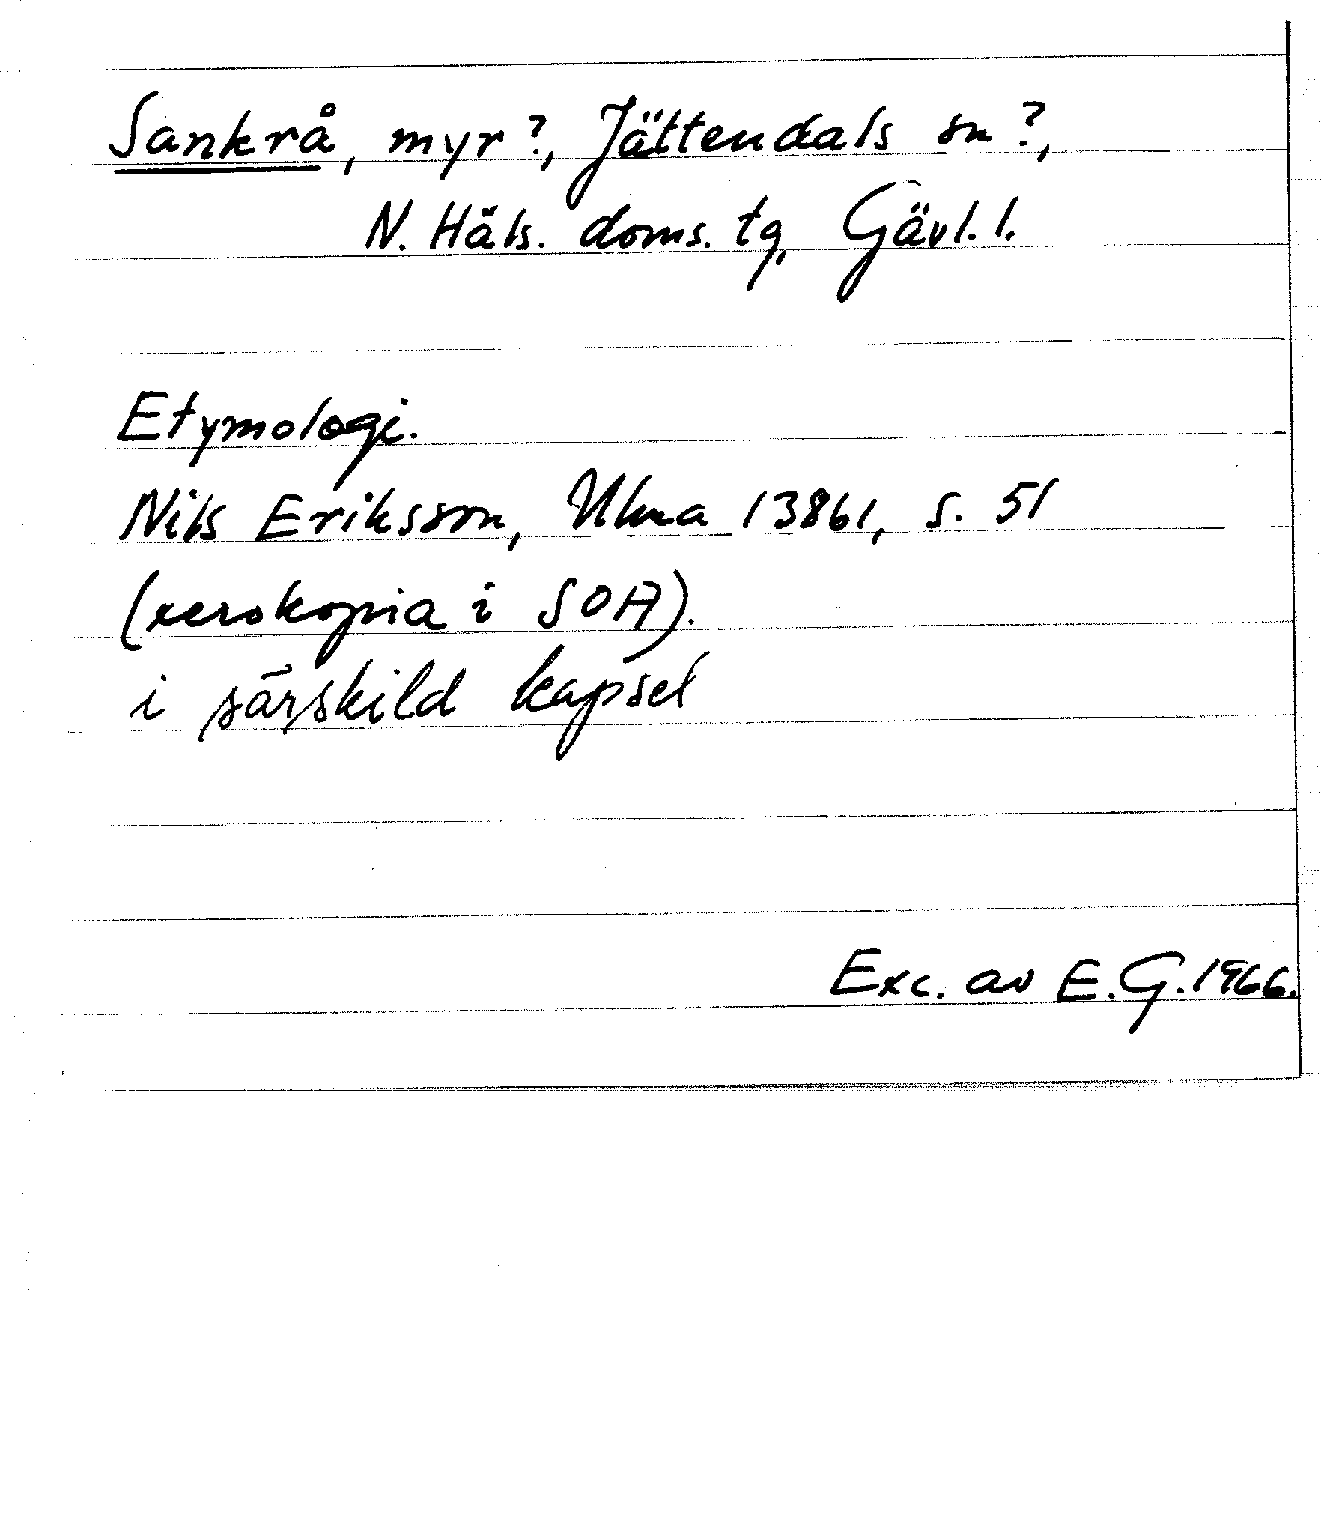 Sankrå, myr?, Jättendals sn?,
N. Häls. doms. tg, Gävl. l.
Etymologi.
Nils Eriksson, Ulma 13861, s. 51
(xerokopia i SOA).
i särskild kapsel
Exc. av E.G. 1966.